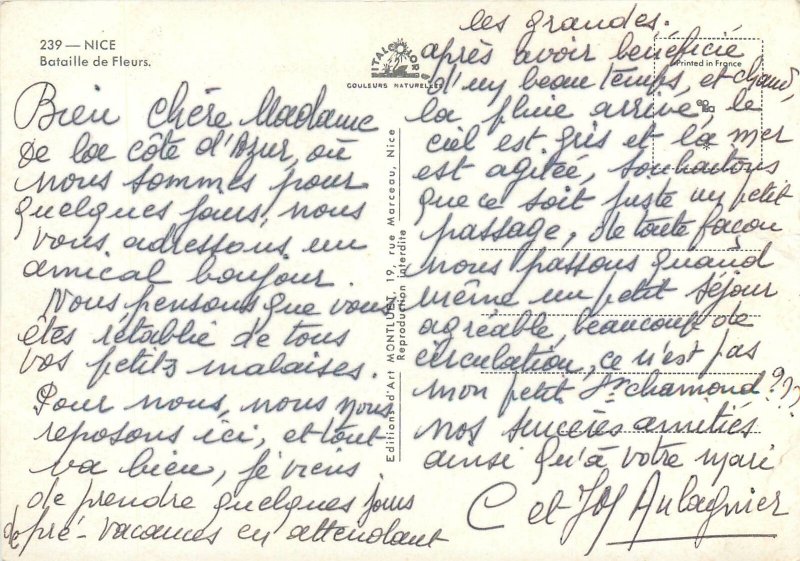 239 — NICE
Bataille de Fleurs.
ITALCOLOR
COULEURS NATURELLES
Printed in France
Bien chère Madame
De la côte d'Azur, où
nous sommes pour
quelques jours, nous
vous adressons un
amical bonjour.
Nous pensons que vous
êtes rétablie de tous
vos petits malaises.
Pour nous, nous nous
reposons ici, et tout
va bien, je viens
de prendre quelques jours
de pré-vacances en attendant
les grandes.
après avoir bénéficié
d'un beau temps, et chaud,
la pluie arrive, le
ciel est gris et la mer
est agitée, souhaitons
que ce soit juste un petit
passage, de toute façon
nous passons quand
même un petit séjour
agréable, beaucoup de
circulation, ce n'est pas
mon petit St chamond???
nos sincères amitiés
ainsi qu'à votre mari
C et Aulagnier
Editions d'Art MONTLUET, 19, rue Marceau, Nice
Reproduction interdite